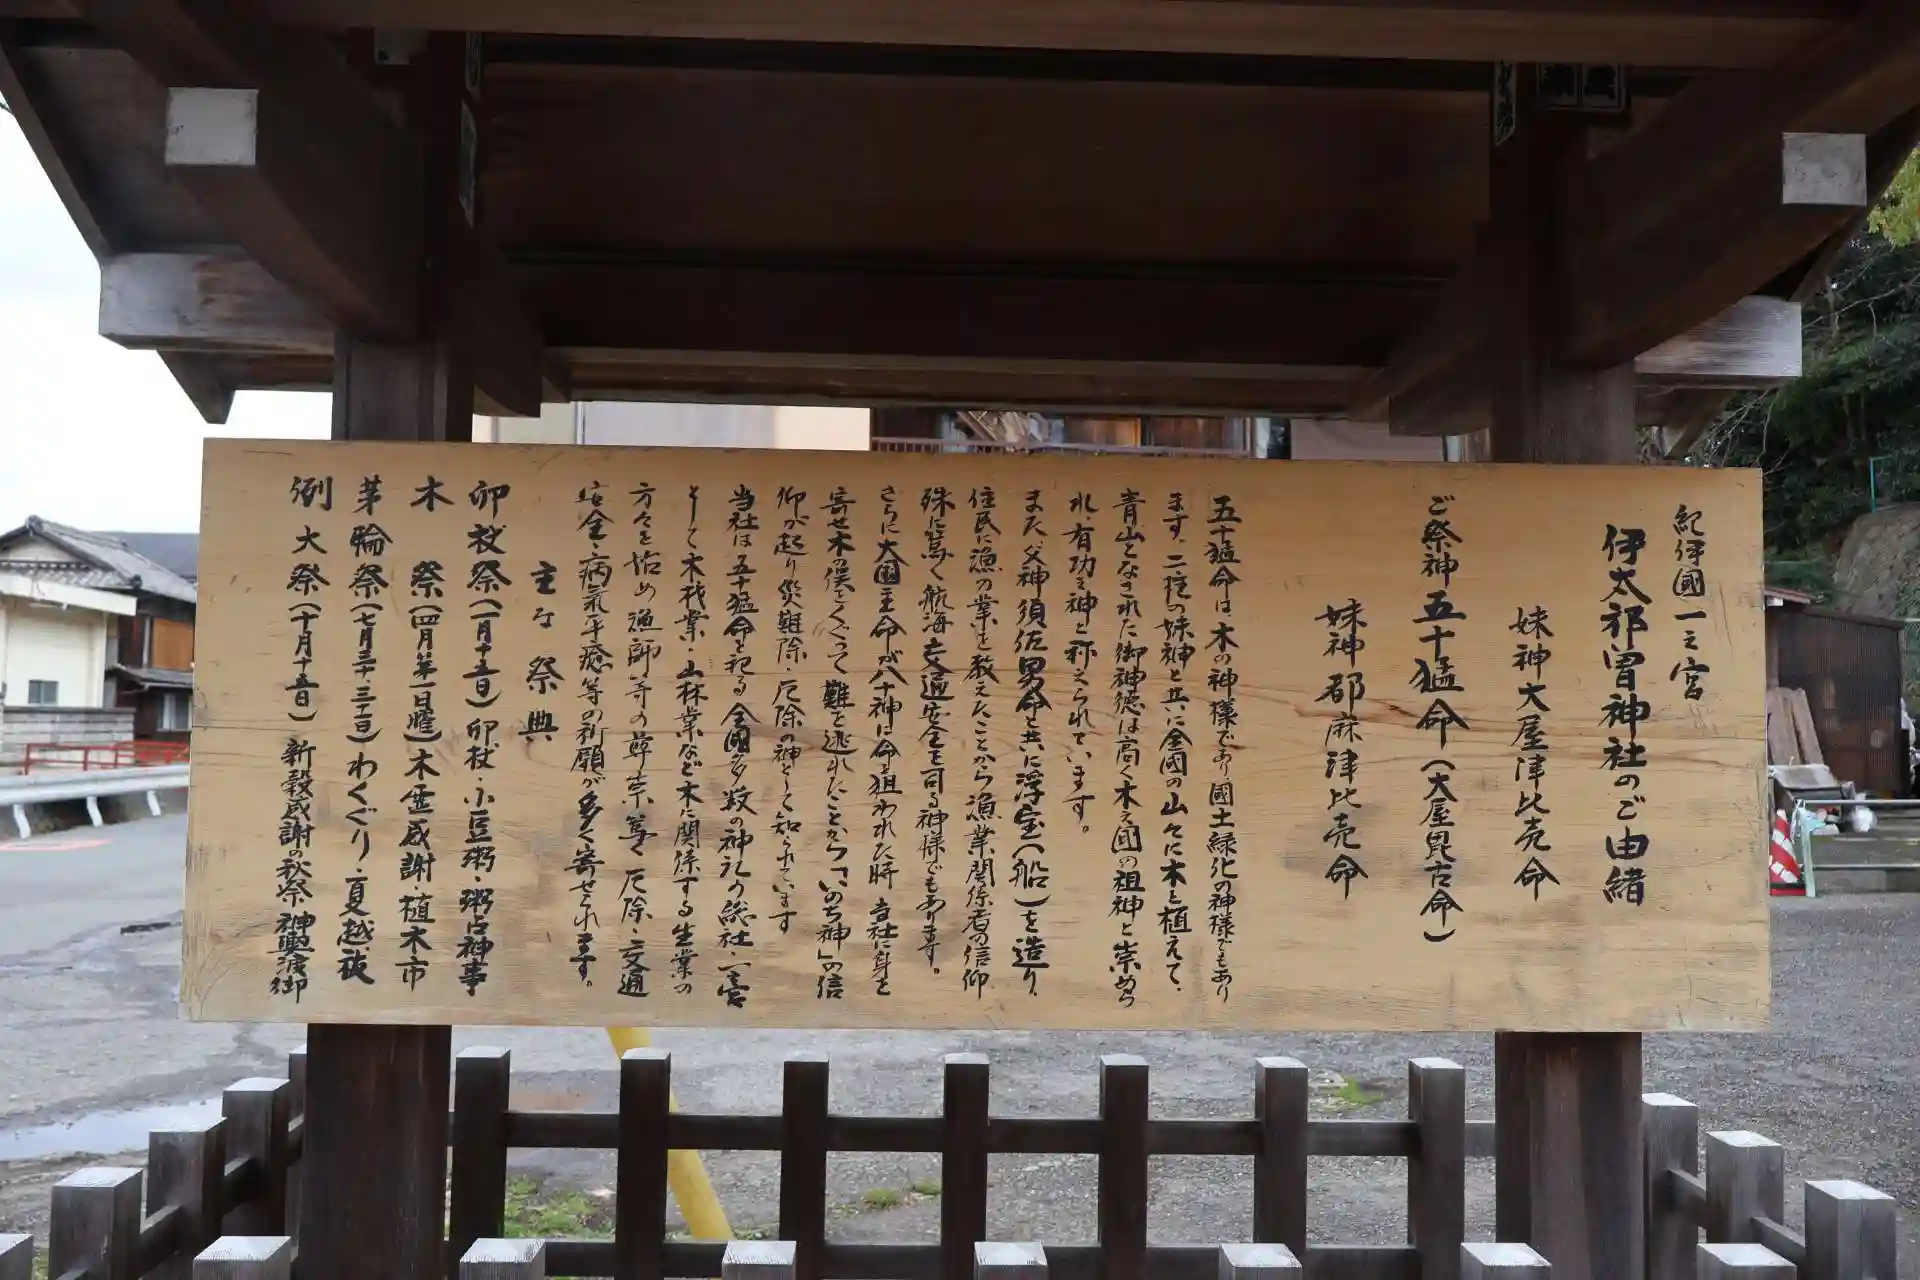 紀伊國一之宮
伊太祁曽神社のご由緒
妹神大屋津比売命
ご祭神五十猛命(大屋毘古命)
妹神都麻津比売命
五十猛命は木の神様であり國土緑化の神様でもあり
ます。二柱の妹神と共に全國の山々に木を植えて、
青山となされた御神徳は高く木之國の祖神と崇めら
れ、有功之神と称えられています。
また父神須佐男命と共に浮宝(船)を造り、
住民に漁の業を教えたことから漁業関係者の信仰
殊に篤く航海交通安全を司る神様でもあります。
さらに大国主命が八十神に命を狙われた時当社に身を
寄せ木の俣をくぐって難を逃れたことから「いのち神」の信
仰が起り災難除・厄除の神として知られています
当社は五十猛命を祀る全國多数の神社の総社・一宮
として木材業・山林業など木に関係する生業の
方々を始め漁師等の尊崇篤く厄除・交通
安全・病氣平癒等の祈願が多く寄せられます。
主な祭典
卯杖祭(一月十五日)卯杖・小豆粥・粥占神事
木祭(四月第一日曜)木霊感謝・植木市
茅輪祭(七月三十・三十一日)わくぐり・夏越祓
例大祭(十月十五日)新穀感謝の秋祭 神輿渡御